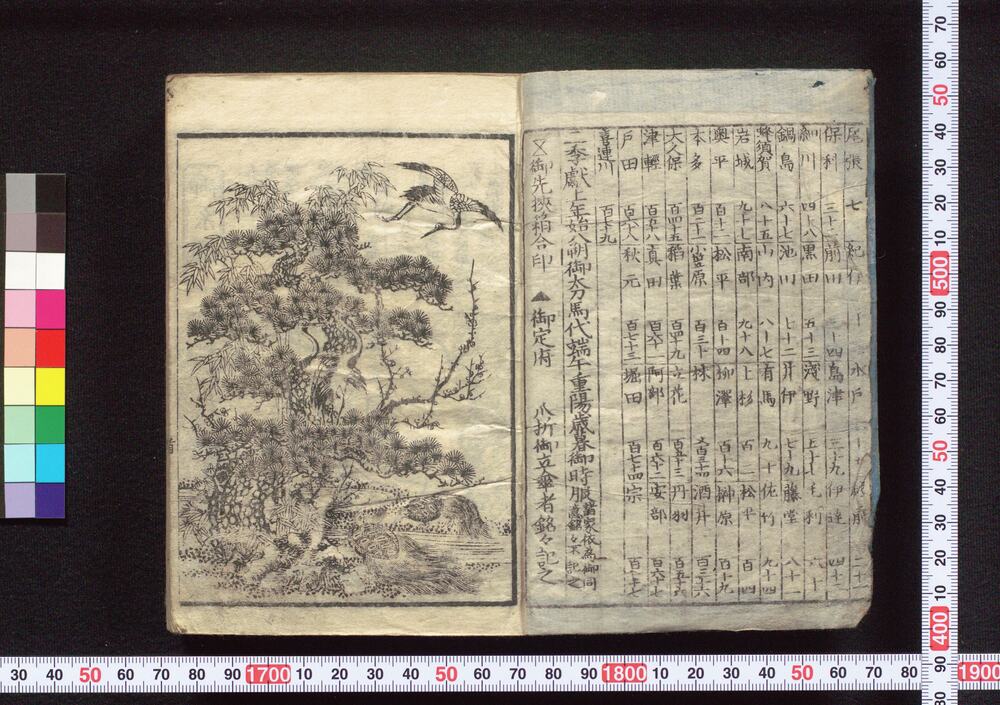 尾張 七 紀伊 十一 水戸 十
保科 三十 前川 三十四 島津 三十九 伊達 四十二
細川 四十八 黒田 五十三 浅野 毛利 六十
鍋島 六十七 池田 七十二 井伊 七十九 藤堂 八十一
蜂須賀 八十五 山内 八十七 有馬 九十 佐竹 九十四
岩城 九十七 南部 九十八 上杉 百二 松平 百四
奥平 百十二 松平 百十四 柳澤 百十六 榊原 百十九
本多 百二十二 小笠原 百三十 林 酒井 百三十六
大久保 百四十五 稲葉 百四十九 立花 百五十三 丹羽 百五十六
津軽 百五十八 真田 百六十一 阿部 百六十二 安部 百六十七
戸田 百六十八 秋元 百七十三 堀田 百七十四 宗 百七十七
喜連川 百七十九
二季献上年始八朔御太刀馬代端午重陽歳暮御時服諸家依為御同意銘々不記之
又御先挟箱合印 ▲御定府 爪折御立傘者銘々記之